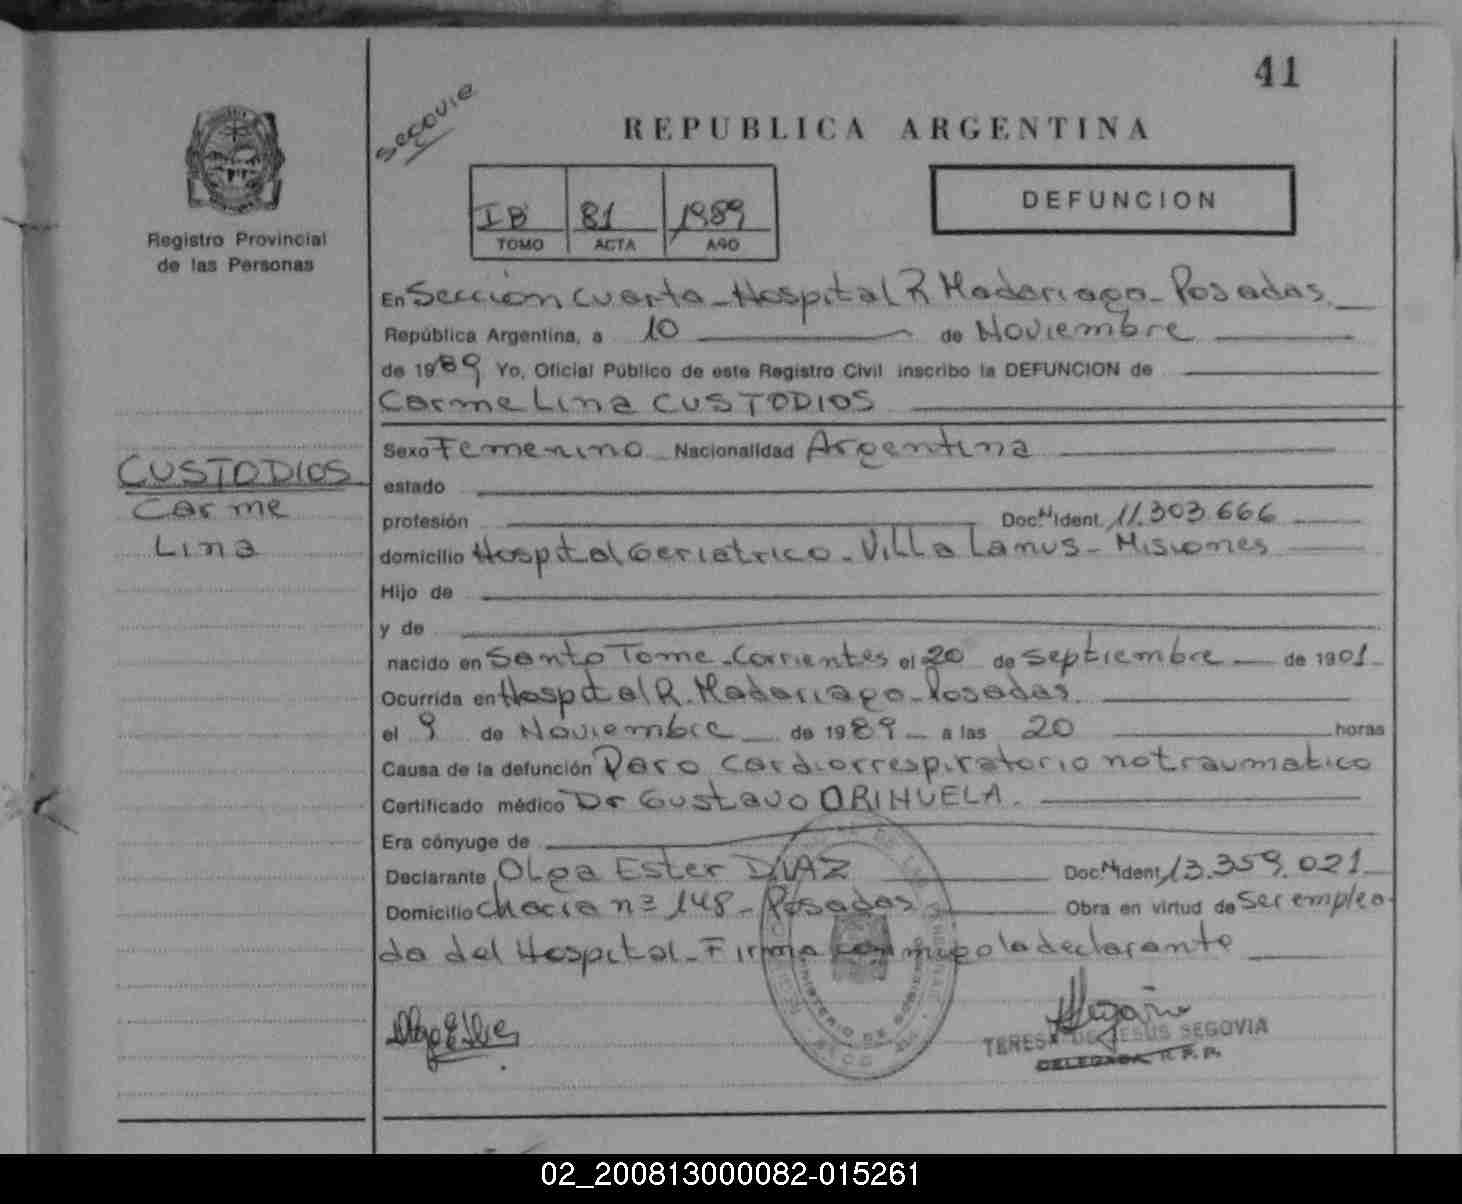 41
Segovia
REPUBLICA ARGENTINA
Registro Provincial
de las Personas
IB 81 1989
TOMO ACTA AÑO
DEFUNCION
En Sección cuarta - Hospital R Madariaga - Posadas.
República Argentina, a 10 de Noviembre
de 1989 Yo, Oficial Público de este Registro Civil inscribo la DEFUNCION de
Carme Lina CUSTODIOS
Sexo Femenino Nacionalidad Argentina
CUSTODIOS
Carme
Lina
estado
profesión Doc. N Ident. 11.303.666
domicilio Hospital Geriatrico - Villa Lanus - Misiones
Hijo de
y de
nacido en Santo Tome - Corrientes el 20 de septiembre de 1901
Ocurrida en Hospital R. Madariaga - Posadas.
el 9 de Noviembre de 1989 a las 20 horas
Causa de la defunción Paro Cardiorrespiratorio no traumatico
Certificado médico Dr Gustavo ORIHUELA.
Era cónyuge de
Declarante Olga Ester DIAZ Doc. N Ident. 13.359.021
Domicilio Chacra nº 148 - Posadas Obra en virtud de ser emplea-
da del Hospital - Firma conmigo la declarante
TERESA DE JESUS SEGOVIA
DELEGADA R.P.P.
MINISTERIO DE GOBIERNO
02_200813000082-015261